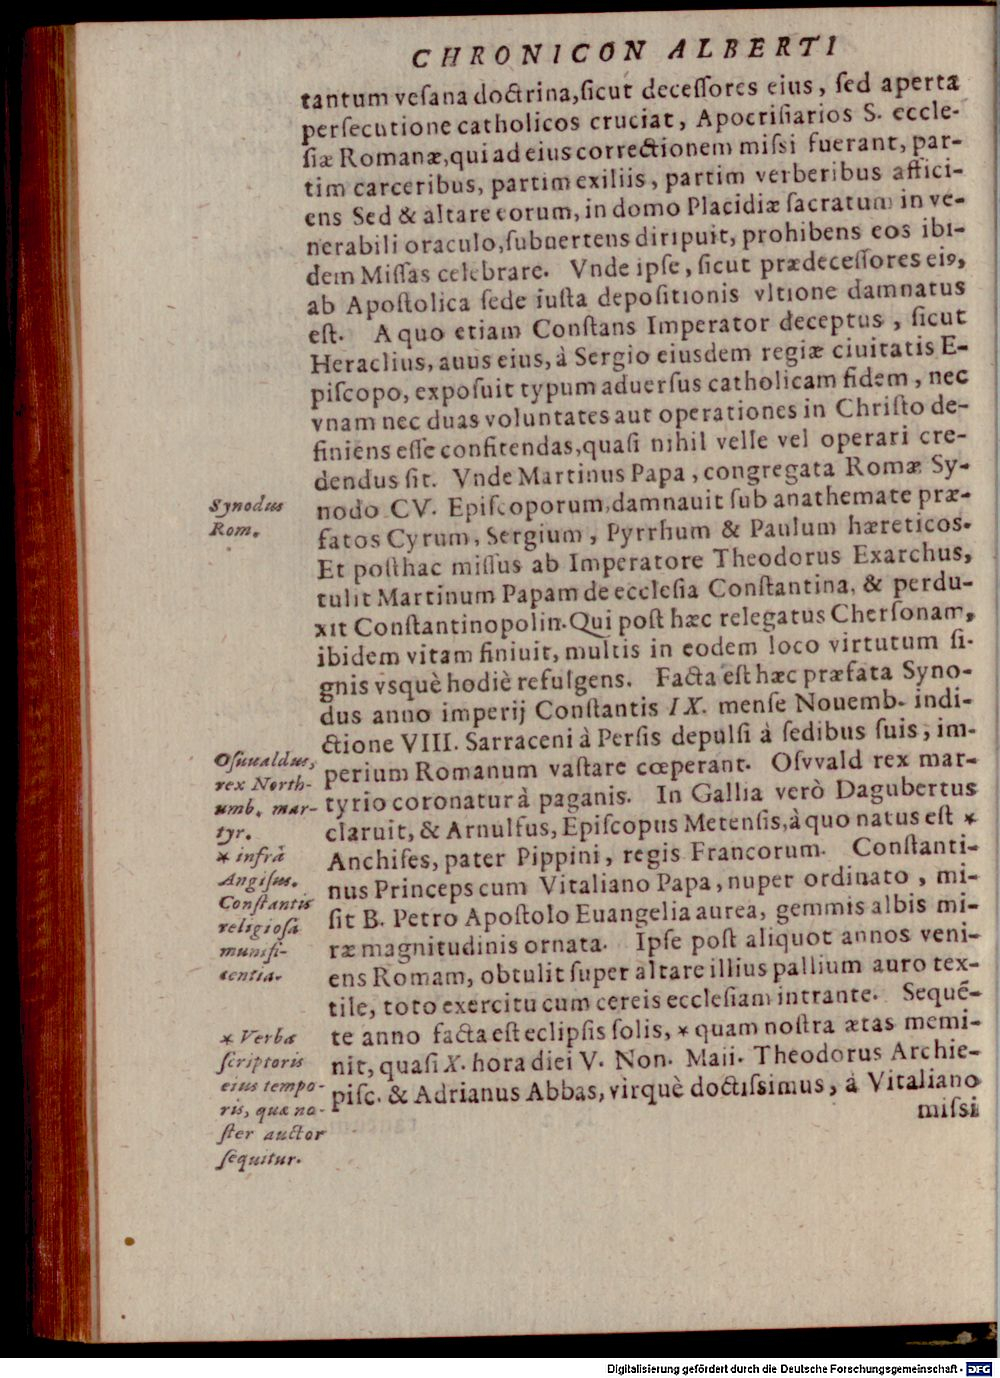 CHRONICON ALBERTI
tantum vesana doctrina, sicut decessores eius, sed aperta
persecutione catholicos cruciat, Apocrisiarios S. eccle-
siæ Romanæ, qui ad eius correctionem missi fuerant, par-
tim carceribus, partim exiliis, partim verberibus affici-
ens Sed & altare eorum, in domo Placidiæ sacratum in ve-
nerabili oraculo, subuertens diripuit, prohibens eos ibi-
dem Missas celebrare. Vnde ipse, sicut prædecessores ei⁹,
ab Apostolica sede iusta depositionis vltione damnatus
est. A quo etiam Constans Imperator deceptus, sicut
Heraclius, auus eius, à Sergio eiusdem regiæ ciuitatis E-
piscopo, exposuit typum aduersus catholicam fidem, nec
vnam nec duas voluntates aut operationes in Christo de-
finiens esse confitendas, quasi nihil velle vel operari cre-
dendus sit. Vnde Martinus Papa, congregata Romæ Sy-
nodo CV. Episcoporum, damnauit sub anathemate præ-
fatos Cyrum, Sergium, Pyrrhum & Paulum hæreticos.
Et posthac missus ab Imperatore Theodorus Exarchus,
tulit Martinum Papam de ecclesia Constantina, & perdu-
xit Constantinopolin. Qui post hæc relegatus Chersonam,
ibidem vitam finiuit, multis in eodem loco virtutum si-
gnis vsquè hodiè refulgens. Facta est hæc præfata Syno-
dus anno imperij Constantis IX. mense Nouemb. indi-
ctione VIII. Sarraceni à Persis depulsi à sedibus suis, im-
perium Romanum vastare cœperant. Osvvald rex mar-
tyrio coronatur à paganis. In Gallia verò Dagubertus
claruit, & Arnulfus, Episcopus Metensis, à quo natus est *
Anchises, pater Pippini, regis Francorum. Constanti-
nus Princeps cum Vitaliano Papa, nuper ordinato, mi-
sit B. Petro Apostolo Euangelia aurea, gemmis albis mi-
ræ magnitudinis ornata. Ipse post aliquot annos veni-
ens Romam, obtulit super altare illius pallium auro tex-
tile, toto exercitu cum cereis ecclesiam intrante. Sequẽ-
te anno facta est eclipsis solis, * quam nostra ætas memi-
nit, quasi X. hora diei V. Non. Maii. Theodorus Archie-
pisc. & Adrianus Abbas, virquè doctissimus, à Vitaliano
missi
Synodus
Rom.
Osuualdus,
rex North-
umb. mar-
tyr.
* infrà
Angisus.
Constantis
religiosa
munifi-
centia.
* Verba
scriptoris
eius tempo-
ris, quæ no-
ster auctor
sequitur.
Digitalisierung gefördert durch die Deutsche Forschungsgemeinschaft - DFG